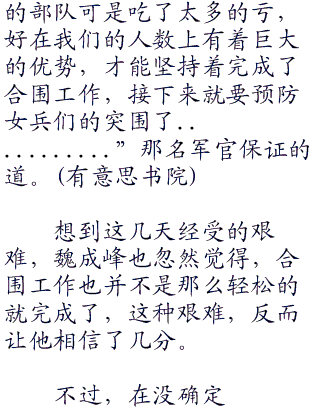 的部队可是吃了太多的亏，
好在我们的人数上有着巨大
的优势，才能坚持着完成了
合围工作，接下来就要预防
女兵们的突围了..
.........”那名军官保证的
道。(有意思书院)
　　想到这几天经受的艰
难，魏成峰也忽然觉得，合
围工作也并不是那么轻松的
就完成了，这种艰难，反而
让他相信了几分。
　　不过，在没确定